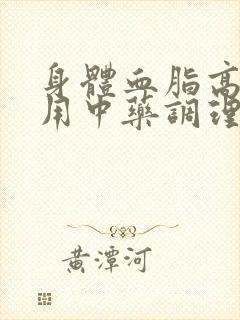 身體血脂高
用中藥調理
黃潭河